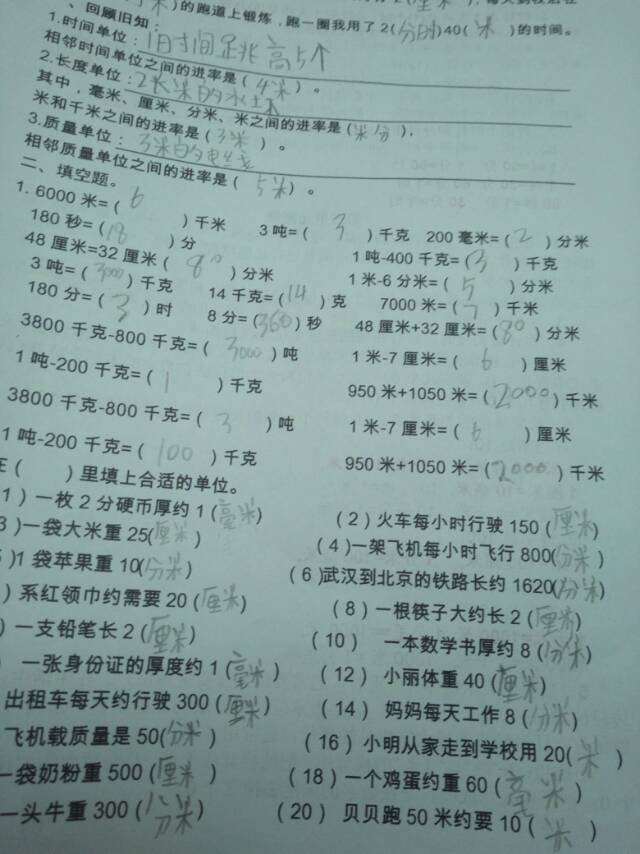 的跑道上锻炼，跑一圈我用了2(分时)40(米)的时间。
一、回顾旧知：
1.时间单位：旧时间是兆高5个
相邻时间单位之间的进率是(4米)。
2.长度单位：2长米的水
其中，毫米、厘米、分米、米之间的进率是(米分)，
米和千米之间的进率是(3米)。
3.质量单位：3米的电线
相邻质量单位之间的进率是(5米)。
二、填空题。
1. 6000米=(6)千米 3吨=(3)千克 200毫米=(2)分米
180秒=(18)分 1吨-400千克=(3)千克
48厘米=32厘米(80)分米 1米-6分米=(5)分米
3吨=(3000)千克 14千克=(14)克 7000米=(7)千米
180分=(3)时 8分=(360)秒 48厘米+32厘米=(80)分米
3800千克-800千克=(3000)吨 1米-7厘米=(6)厘米
1吨-200千克=(1)千克 950米+1050米=(2000)千米
3800千克-800千克=(3)吨 1米-7厘米=(6)厘米
1吨-200千克=(100)千克 950米+1050米=(2000)千米
在( )里填上合适的单位。
1）一枚2分硬币厚约1(毫米) （2）火车每小时行驶150(厘米)
3）一袋大米重25(厘米) （4）一架飞机每小时飞行800(分米)
）1袋苹果重10(分米) （6）武汉到北京的铁路长约1620(分米)
）系红领巾约需要20(厘米) （8）一根筷子大约长2(厘米)
）一支铅笔长2(厘米) （10）一本数学书厚约8(分米)
）一张身份证的厚度约1(毫米) （12）小丽体重40(厘米)
出租车每天约行驶300(厘米) （14）妈妈每天工作8(分米)
飞机载质量是50(分米) （16）小明从家走到学校用20(米)
一袋奶粉重500(厘米) （18）一个鸡蛋约重60(毫米)
一头牛重300(分米) （20）贝贝跑50米约要10(米)